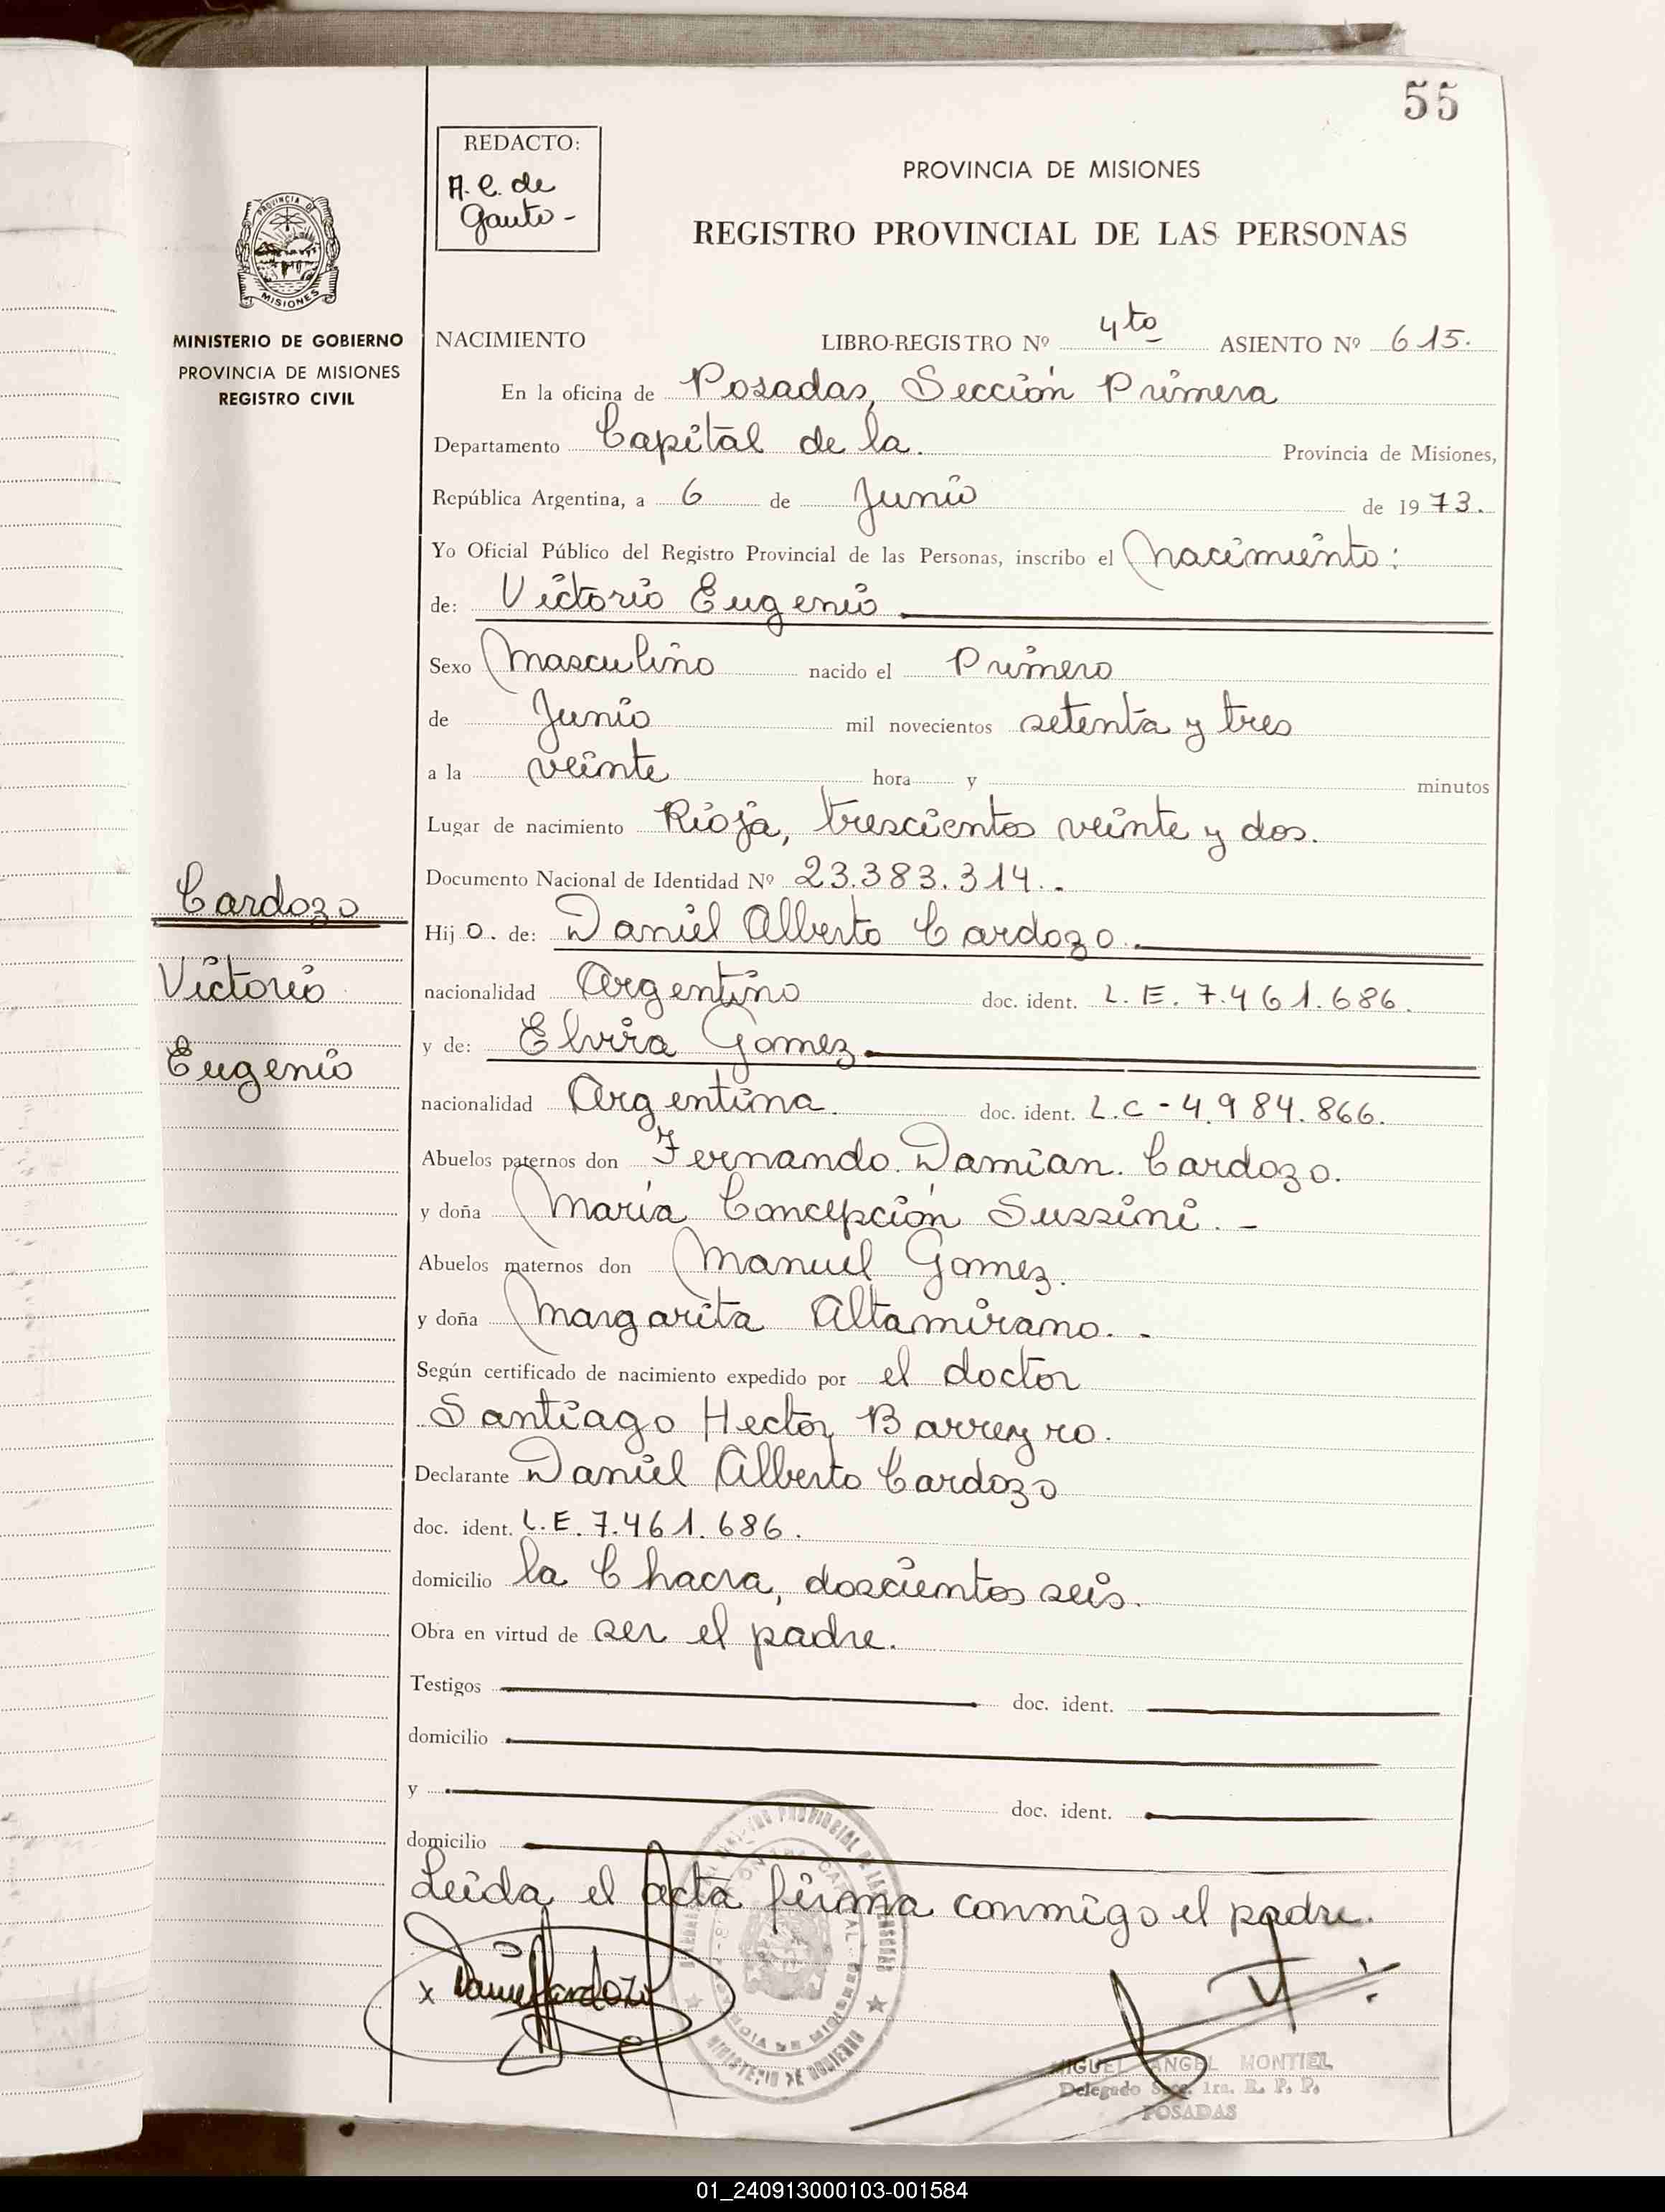 55
REDACTO:
A. C. de
Gauto -
PROVINCIA DE MISIONES
REGISTRO PROVINCIAL DE LAS PERSONAS
PROVINCIA DE
MISIONES
MINISTERIO DE GOBIERNO
PROVINCIA DE MISIONES
REGISTRO CIVIL
NACIMIENTO LIBRO-REGISTRO Nº 4to ASIENTO Nº 615.
En la oficina de Posadas, Sección Primera
Departamento Capital de la. Provincia de Misiones,
República Argentina, a 6 de Junio de 1973.
Yo Oficial Público del Registro Provincial de las Personas, inscribo el Nacimiento:
de: Victorio Eugenio
Sexo Masculino nacido el Primero
de Junio mil novecientos setenta y tres
a la veinte hora y minutos
Lugar de nacimiento Rioja, trescientos veinte y dos.
Documento Nacional de Identidad Nº 23.383.314..
Cardozo
Hijo. de: Daniel Alberto Cardozo.
Victorio
nacionalidad Argentino doc. ident. L. E. 7.461.686.
y de: Elvira Gomez
Eugenio
nacionalidad Argentina. doc. ident. L.C - 4.984.866.
Abuelos paternos don Fernando. Damian. Cardozo.
y doña María Concepción Sussini. -
Abuelos maternos don Manuel Gomez.
y doña Margarita Altamirano. -
Según certificado de nacimiento expedido por el doctor
Santiago Hector Barreyro.
Declarante Daniel Alberto Cardozo
doc. ident. L.E. 7.461.686.
domicilio la Chacra, doscientos seis.
Obra en virtud de ser el padre.
Testigos doc. ident.
domicilio
y doc. ident.
domicilio
Leida el acta firma conmigo el padre.
x Daniel Cardozo
MINISTERIO DE GOBIERNO
MIGUEL ANGEL MONTIEL
Delegado Secc. 1ra. R. P. P.
POSADAS
01_240913000103-001584